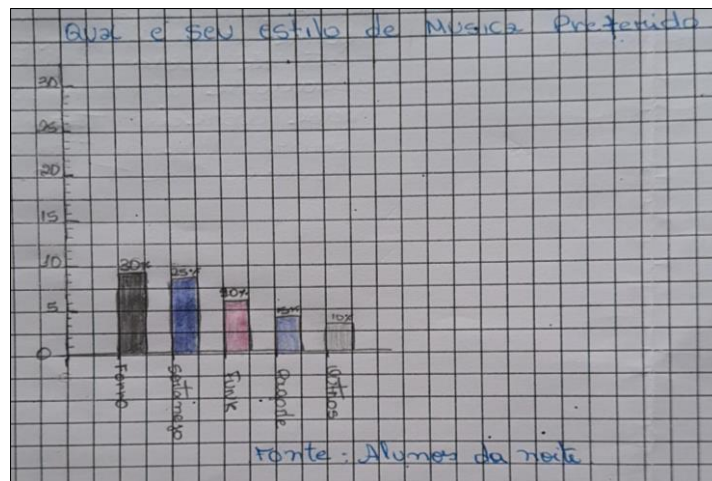 Qual e seu estilo de Musica Preferido
30
25
20
15
10
5
0
30%
25%
20%
15%
10%
Forró
Sertanejo
Funk
Pagode
outros
Fonte: Alunos da noite